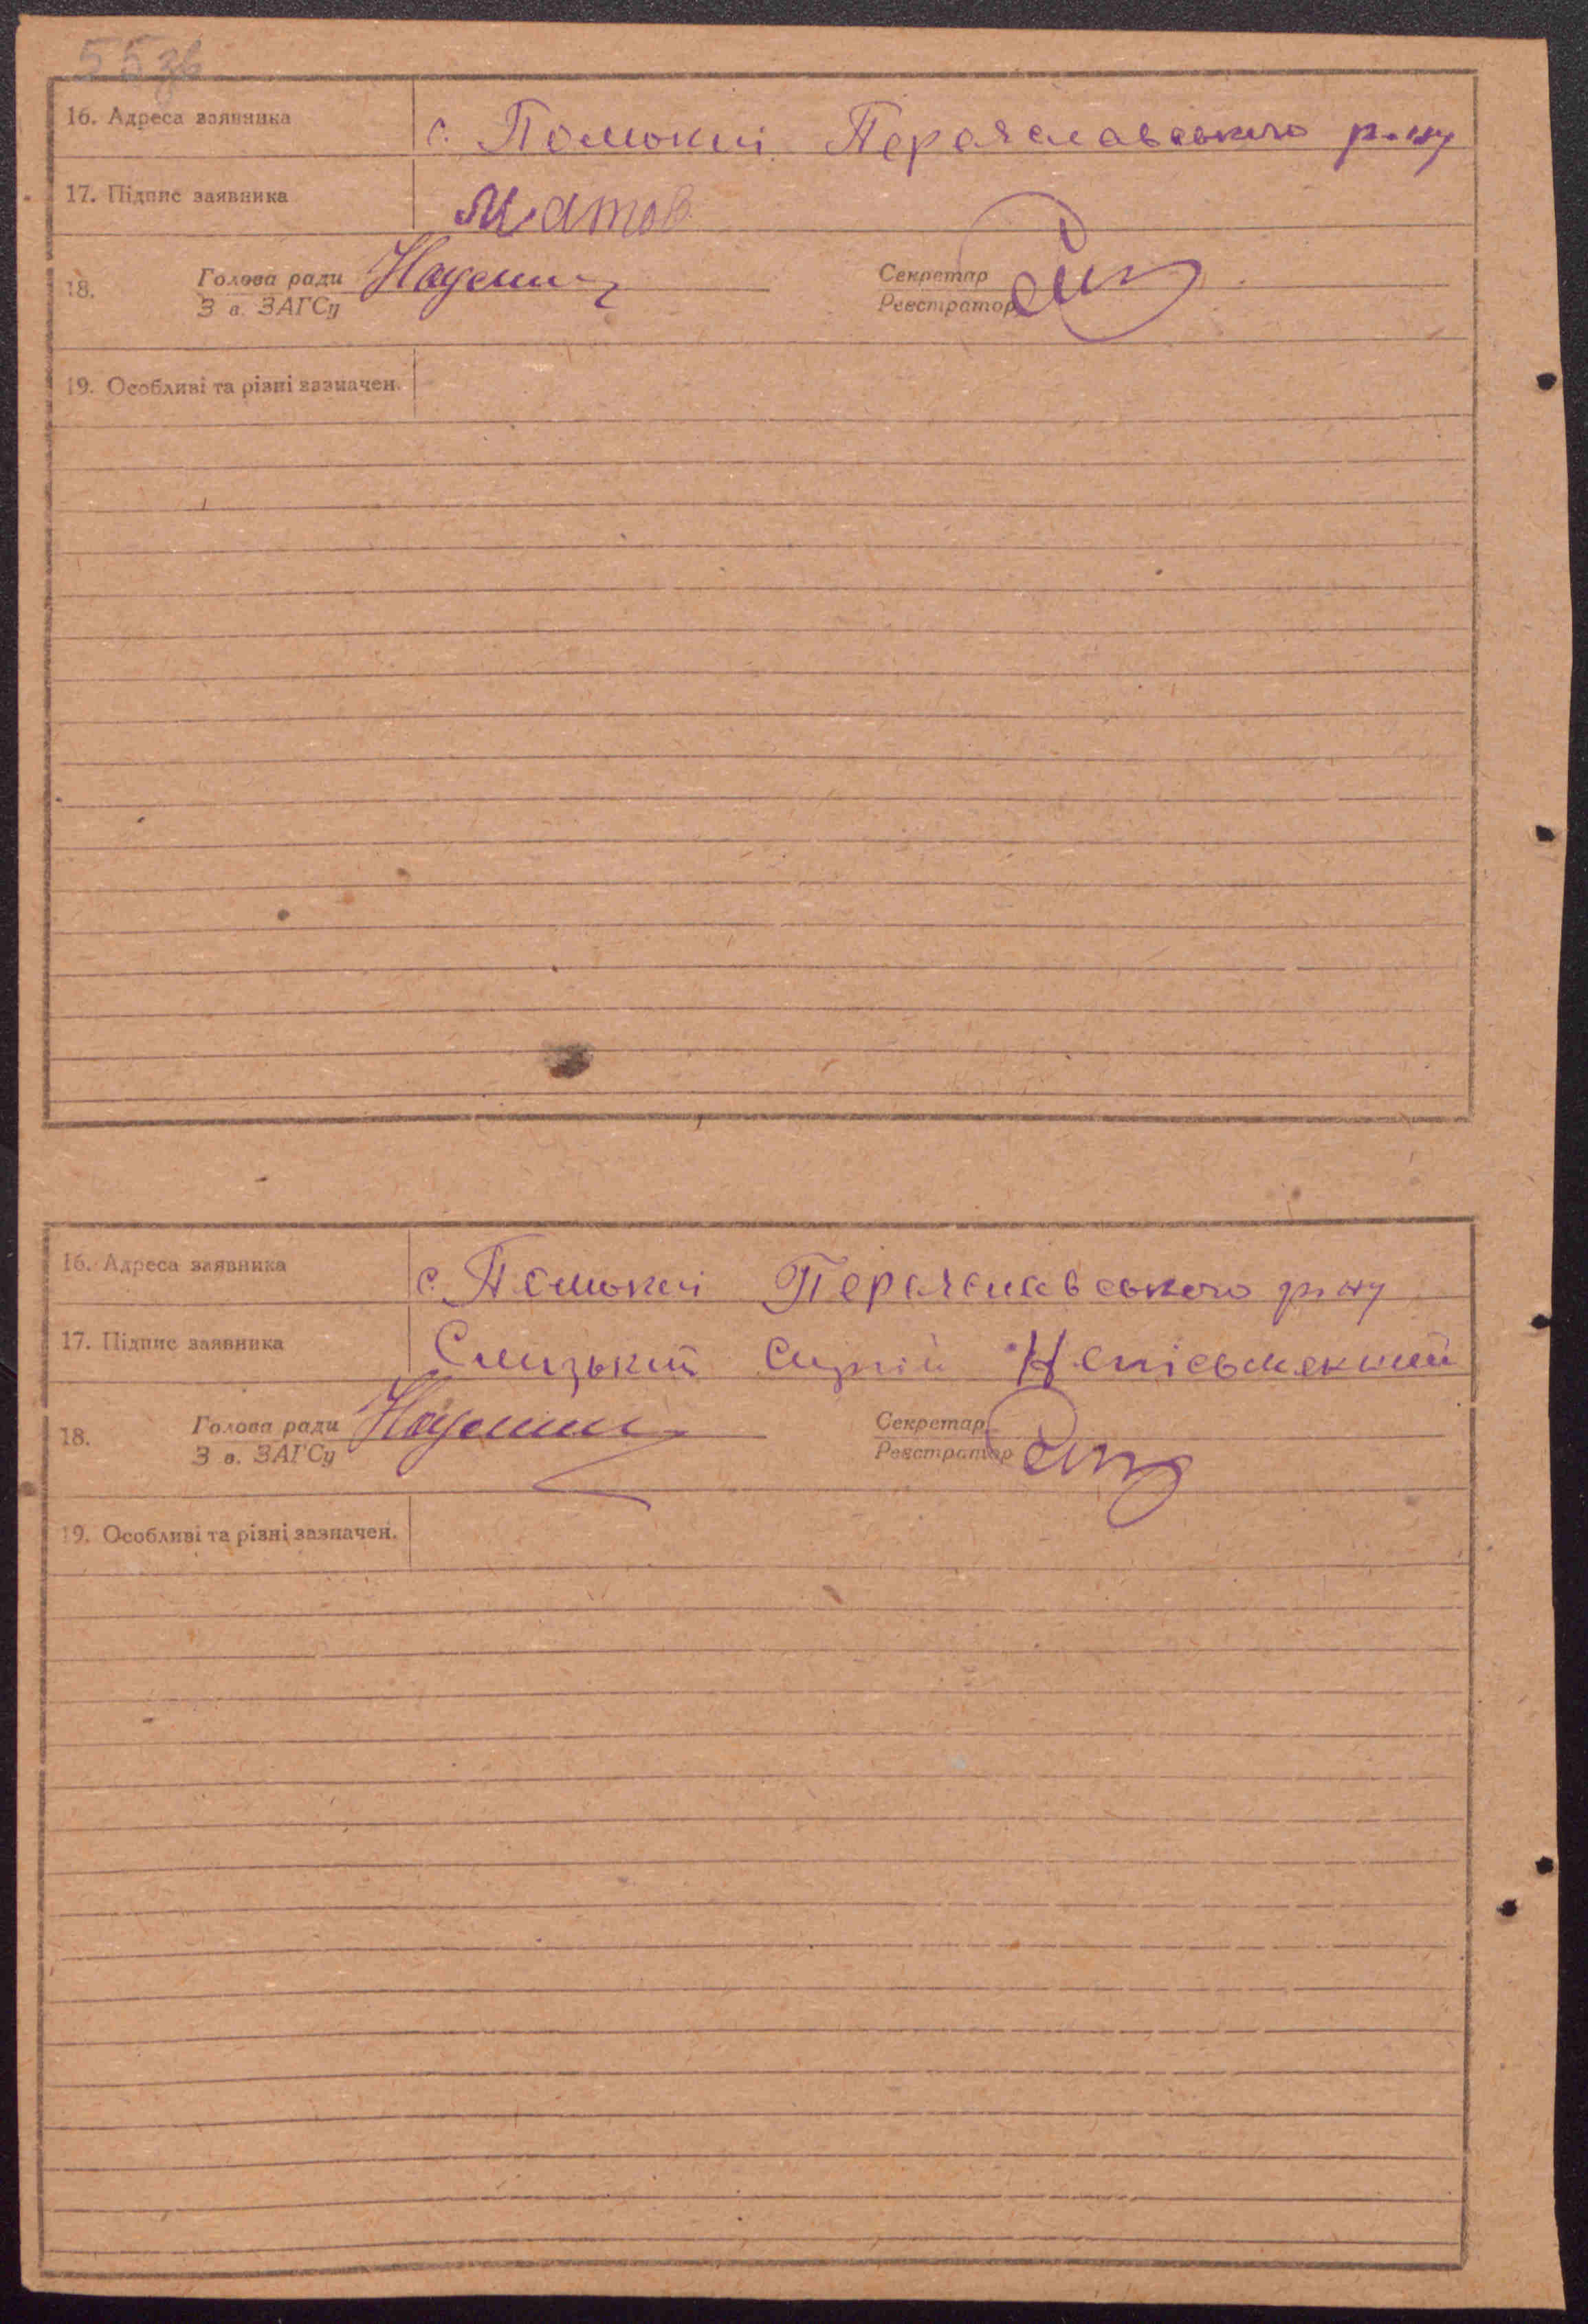 55 зв
16. Адреса заявника с. Помокні Переяславського р-ну
17. Підпис заявника Матов
18. Голова ради Секретар
З в. ЗАГСу Реєстратор
19. Особливі та різні зазначен.
16. Адреса заявника с. Помокні Переяславського р-ну
17. Підпис заявника Слизький Сергій Неписьменний
18. Голова ради Секретар
З в. ЗАГСу Реєстратор
19. Особливі та різні зазначен.